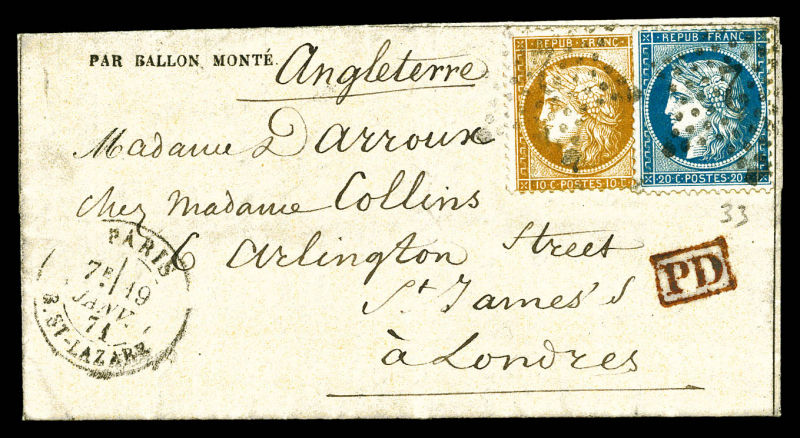 PAR BALLON MONTÉ.
Angleterre
REPUB FRANC
10 C POSTES 10 C
REPUB FRANC
20 C POSTES 20 C
Madame Darroux
chez Madame Collins
6 Arlington Street
St James's
à Londres
33
PD
PARIS
7E 19
JANV.
71
R. ST-LAZARE